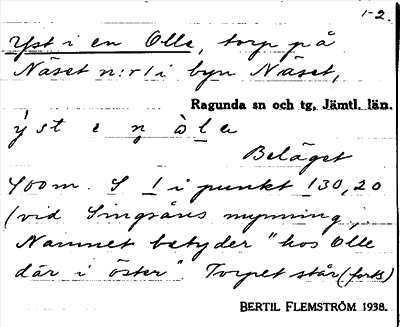 1-2.
Yst i en Olle, torp på
Näset n:r 1 i byn Näset,
Ragunda sn och tg, Jämtl. län.
ýst e n òla
Beläget
400 m. S 1 i punkt 130,20
(vid Singsåns mynning,
Namnet betyder "hos Olle
där i öster". Torpet står (forts)
BERTIL FLEMSTRÖM 1938.